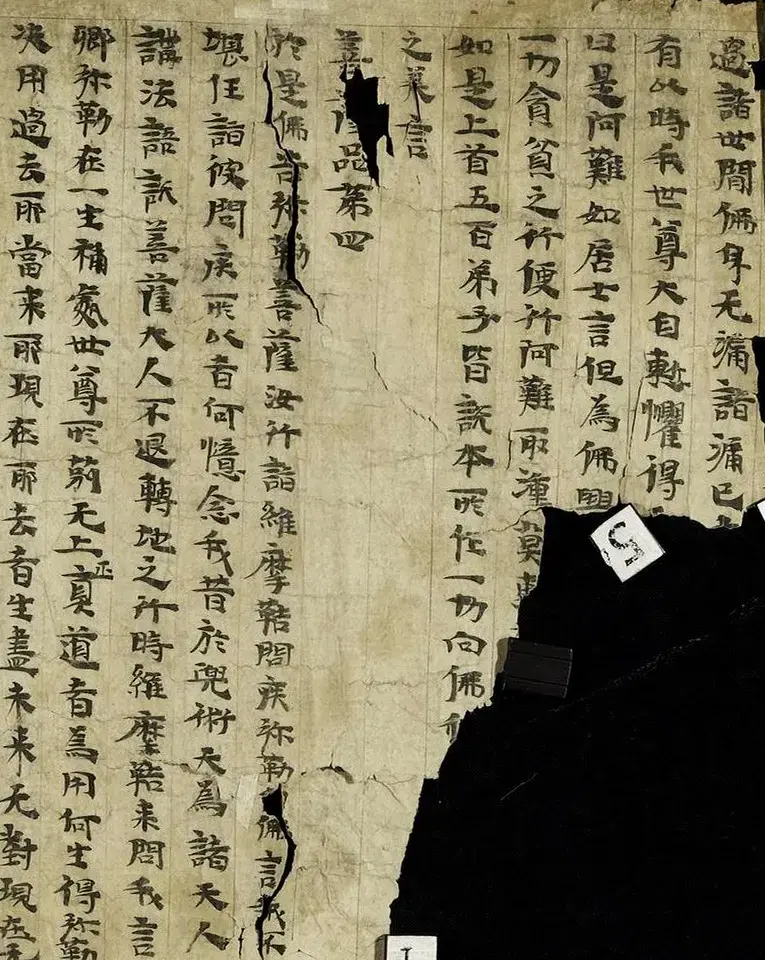 過諸世間佛身无漏諸漏已
有以時我世尊大自慚懼得
曰是阿難如居士言但為佛興
一切貪貧之行便行阿難取湩莫
如是上首五百弟子皆說本所作一切向佛
之美言
菩薩品第四
於是佛告弥勒菩薩汝行詣維摩詰問疾弥勒佛言我不
堪任詣彼問疾所以者何憶念我昔於兜術天為諸天人
講法語說菩薩大人不退轉地之行時維摩詰来問我言
卿弥勒在一生補處世尊所莂无上正真道者為用何生得弥勒
决用過去耶當来耶現在耶去者生盡未来无對現在无
5
I